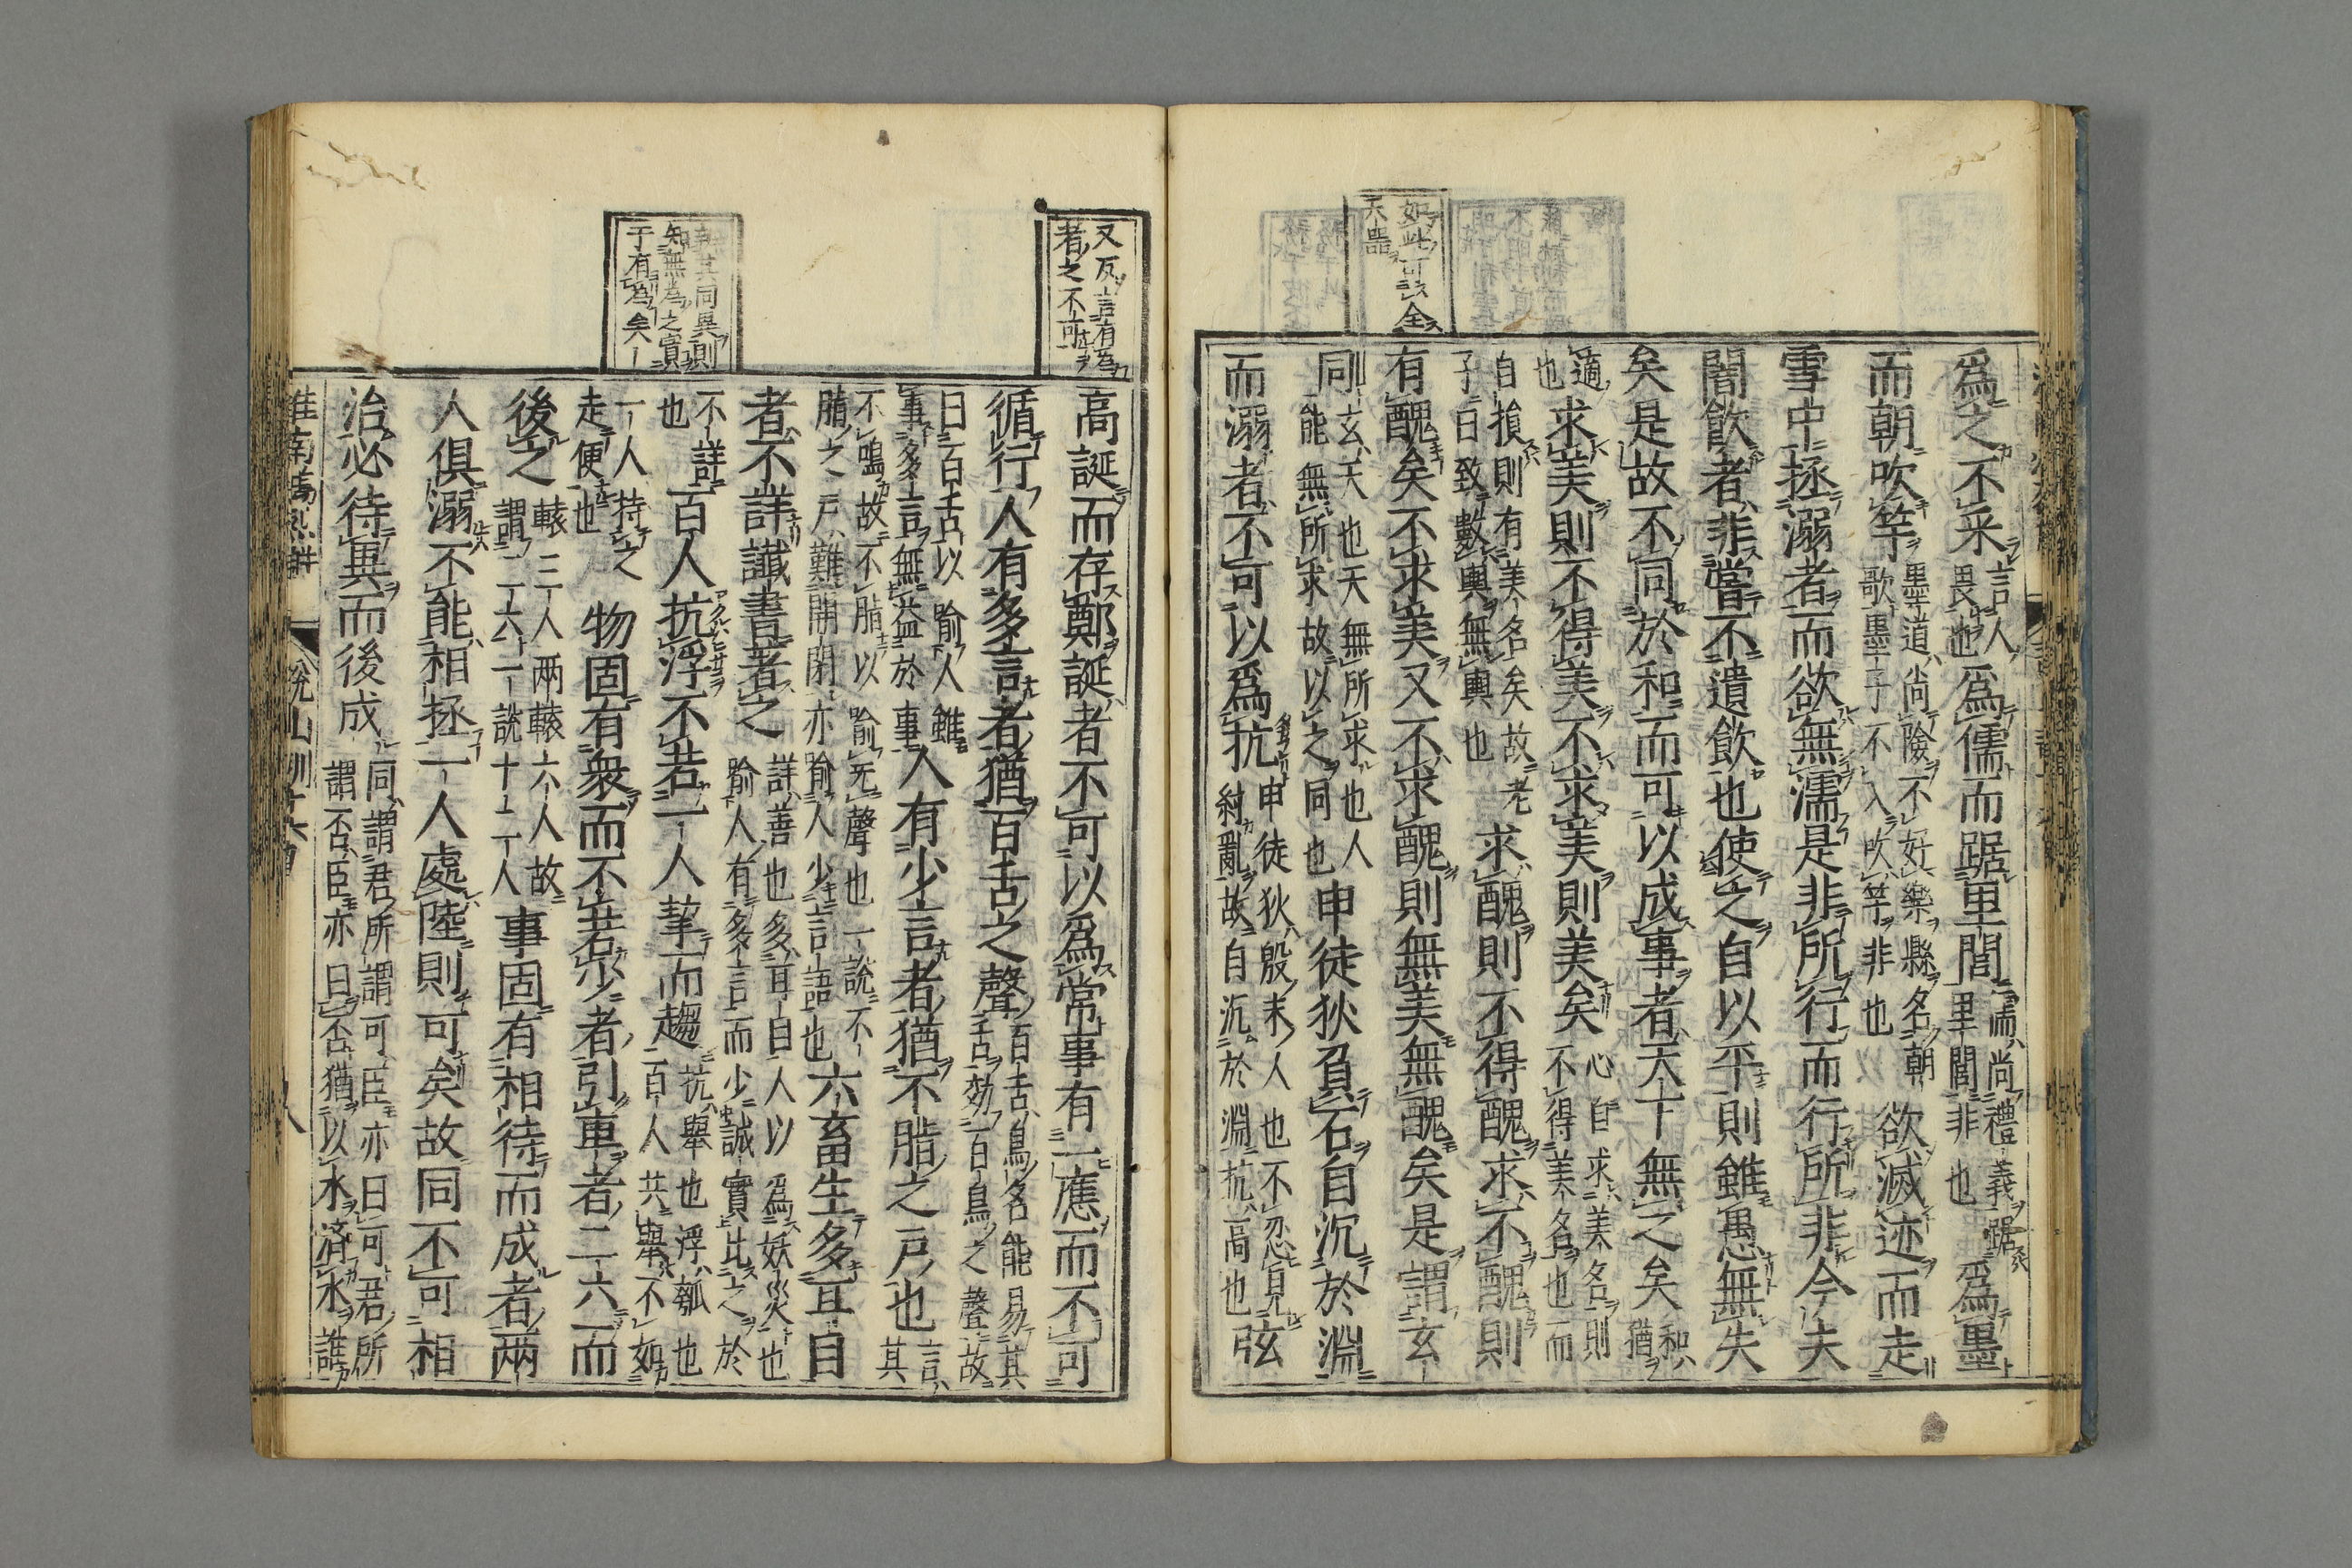 如此可全
天器
爲之不采言人畏也爲儒而踞里閭儒尚禮義踞里閭非也爲墨
而朝吹竽墨道尚儉不好樂縣名朝歌墨子不入吹竽非也欲滅迹而走
雪中拯溺者而欲無濡是非所行而行所非今夫
闇飲者非嘗不遺飲也使之自以平則雖愚無失
矣是故不同於和而可以成事者天下無之矣和猶
適也求美則不得美不求美則美矣心自求美名則不得美名也而
自損則有美名矣故老子曰致數輿無輿也求醜則不得醜求不醜則
有醜矣不求美又不求醜則無美無醜矣是謂玄
同玄天也天無所求也人能無所求故以之同也申徒狄負石自沉於淵
而溺者不可以爲抗申徒狄殷末人也不忍見紂亂故自沉於淵抗高也弦
又反言有爲
者之不可
高誕而存鄭誕者不可以爲常事有一應而不可
循行人有多言者猶百舌之聲百舌鳥名能易其舌効百鳥之聲故
曰百舌以喻人雖事多言無益於事人有少言者猶不脂之戶也言其
不鳴故不脂以喻无聲也一說不脂之戶難開閉亦喻人少言語也六畜生多耳目
者不詳讖書著之詳善也多耳目人以爲妖災也喻人有多言而少誠實比之於
不詳也百人抗浮不若一人挈而趨抗舉也浮瓠也百人共舉不如
一人持之走便也物固有衆而不若少者引車者二六而
後之轅三人兩轅六人故謂二六一說十二人事固有相待而成者兩
人俱溺不能相拯一人處陸則可矣故同不可相
治必待異而後成同謂君所謂可臣亦曰可君所謂否臣亦曰否猶以水濟水誰
其同異則
知無爲之實
于有爲矣
說山訓